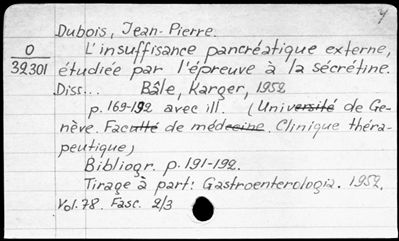 Y
Dubois, Jean-Pierre.
O
39301
L'insuffisance pancréatique externe,
étudiée par l'épreuve à la sécrétine.
Diss... Bâle, Karger, 1952
p. 169-192 avec ill. (Université de Ge-
nève. Faculté de médecine. Clinique théra-
peutique)
Bibliogr. p. 191-192.
Tirage à part: Gastroenterologia. 1952.
Vol. 78. Fasc. 2/3